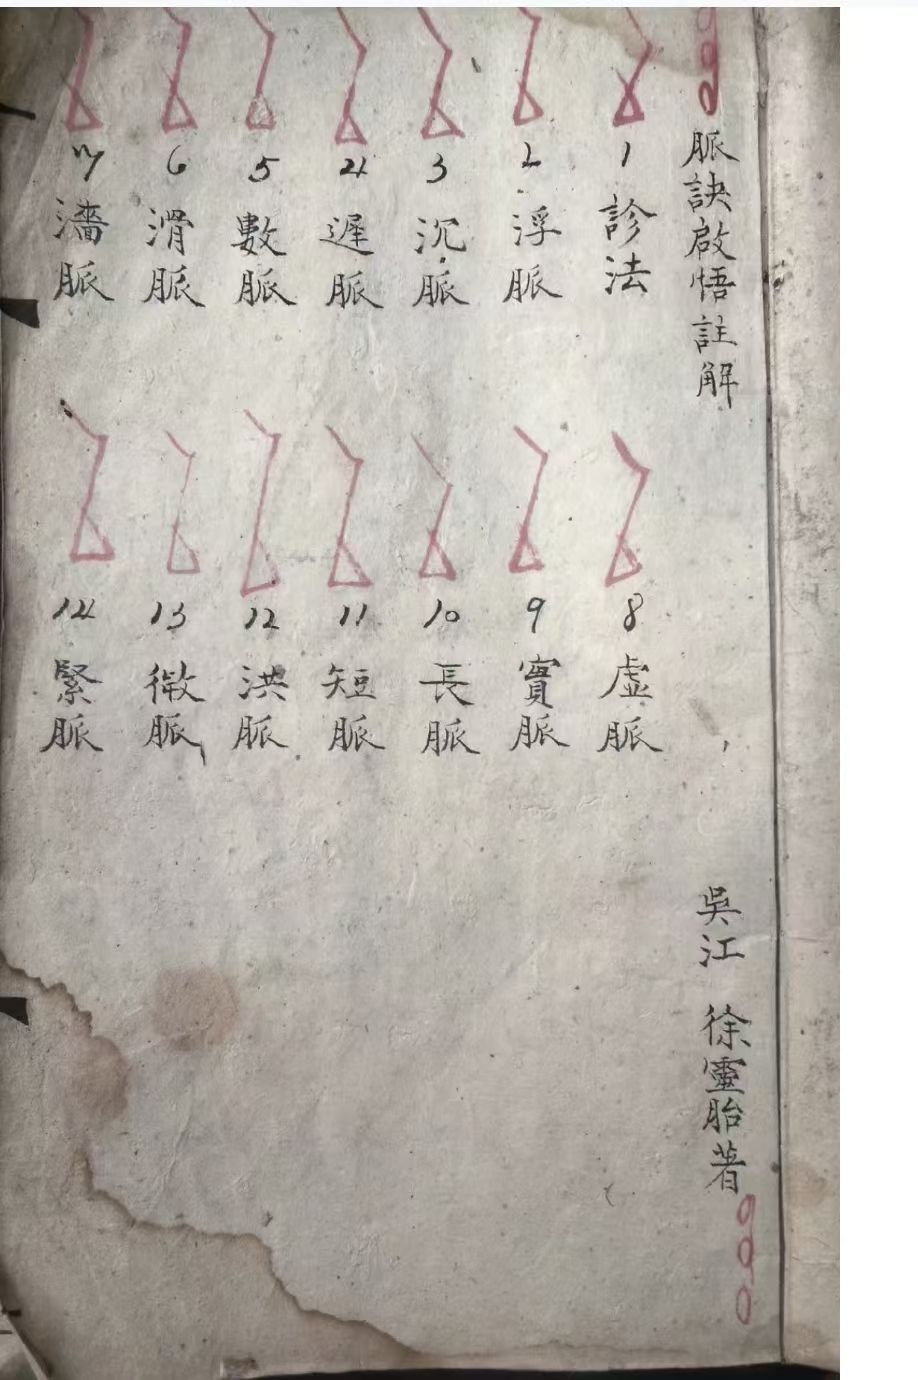 脈訣啟悟註解
吳江 徐靈胎著
1 診法
2 浮脈
3 沉脈
4 遲脈
5 數脈
6 滑脈
7 濇脈
8 虛脈
9 實脈
10 長脈
11 短脈
12 洪脈
13 微脈
14 緊脈